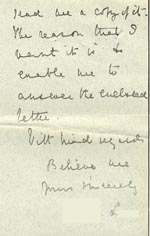 send me a copy of it.
The reason that I
want it is to
enable me to
answer the enclosed
letter.
With kind regards
Believe me
Yours sincerely